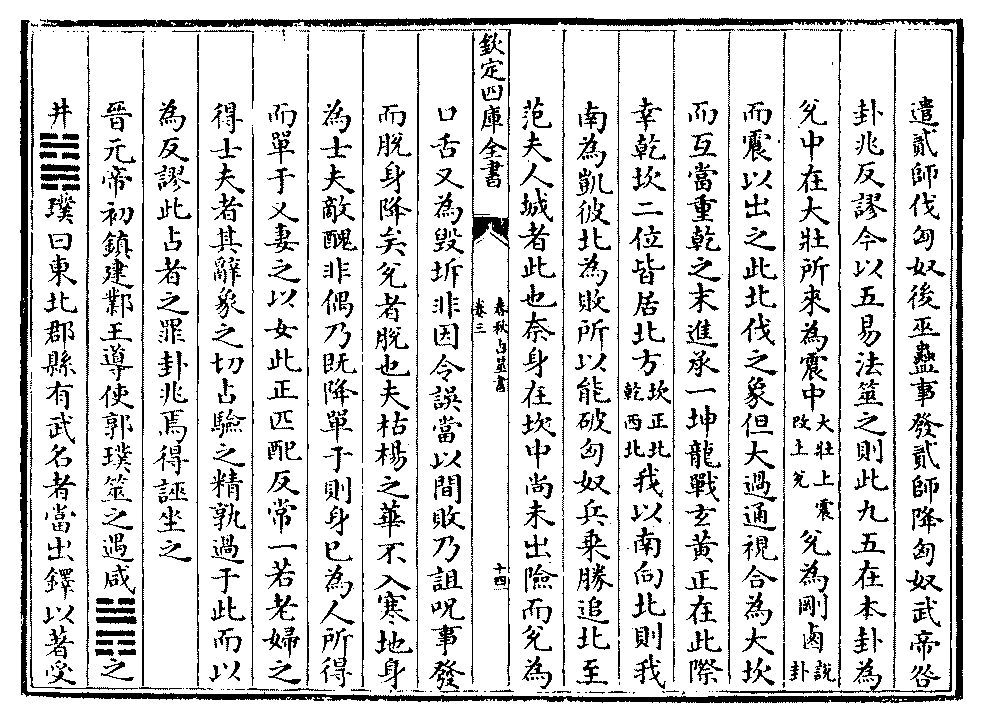 遣貳師伐匈奴後巫蠱事發貳師降匈奴武帝咎
卦兆反謬今以五易法筮之則此九五在本卦為
兌中在大壯所來為震中大壯上震改上兌兌為剛鹵說卦
而震以出之此北伐之象但大過通視合為大坎
而互當重乾之末進承一坤龍戰玄黃正在此際
幸乾坎二位皆居北方坎正北乾西北我以南向北則我
南為凱彼北為敗所以能破匈奴兵乘勝追北至
范夫人城者此也奈身在坎中尚未出險而兌為
欽定四庫全書
春秋占筮書
卷三
十四
口舌又為毀折非因令誤當以間敗乃詛呪事發
而脫身降矣兌者脫也夫枯楊之華不入寒地身
為士夫敵醜非偶乃既降單于則身已為人所得
而單于又妻之以女此正匹配反常一若老婦之
得士夫者其辭象之切占驗之精孰過于此而以
為反謬此占者之罪卦兆焉得誣坐之
晉元帝初鎮建鄴王導使郭璞筮之遇咸䷞之
井䷯璞曰東北郡縣有武名者當出鐸以著受